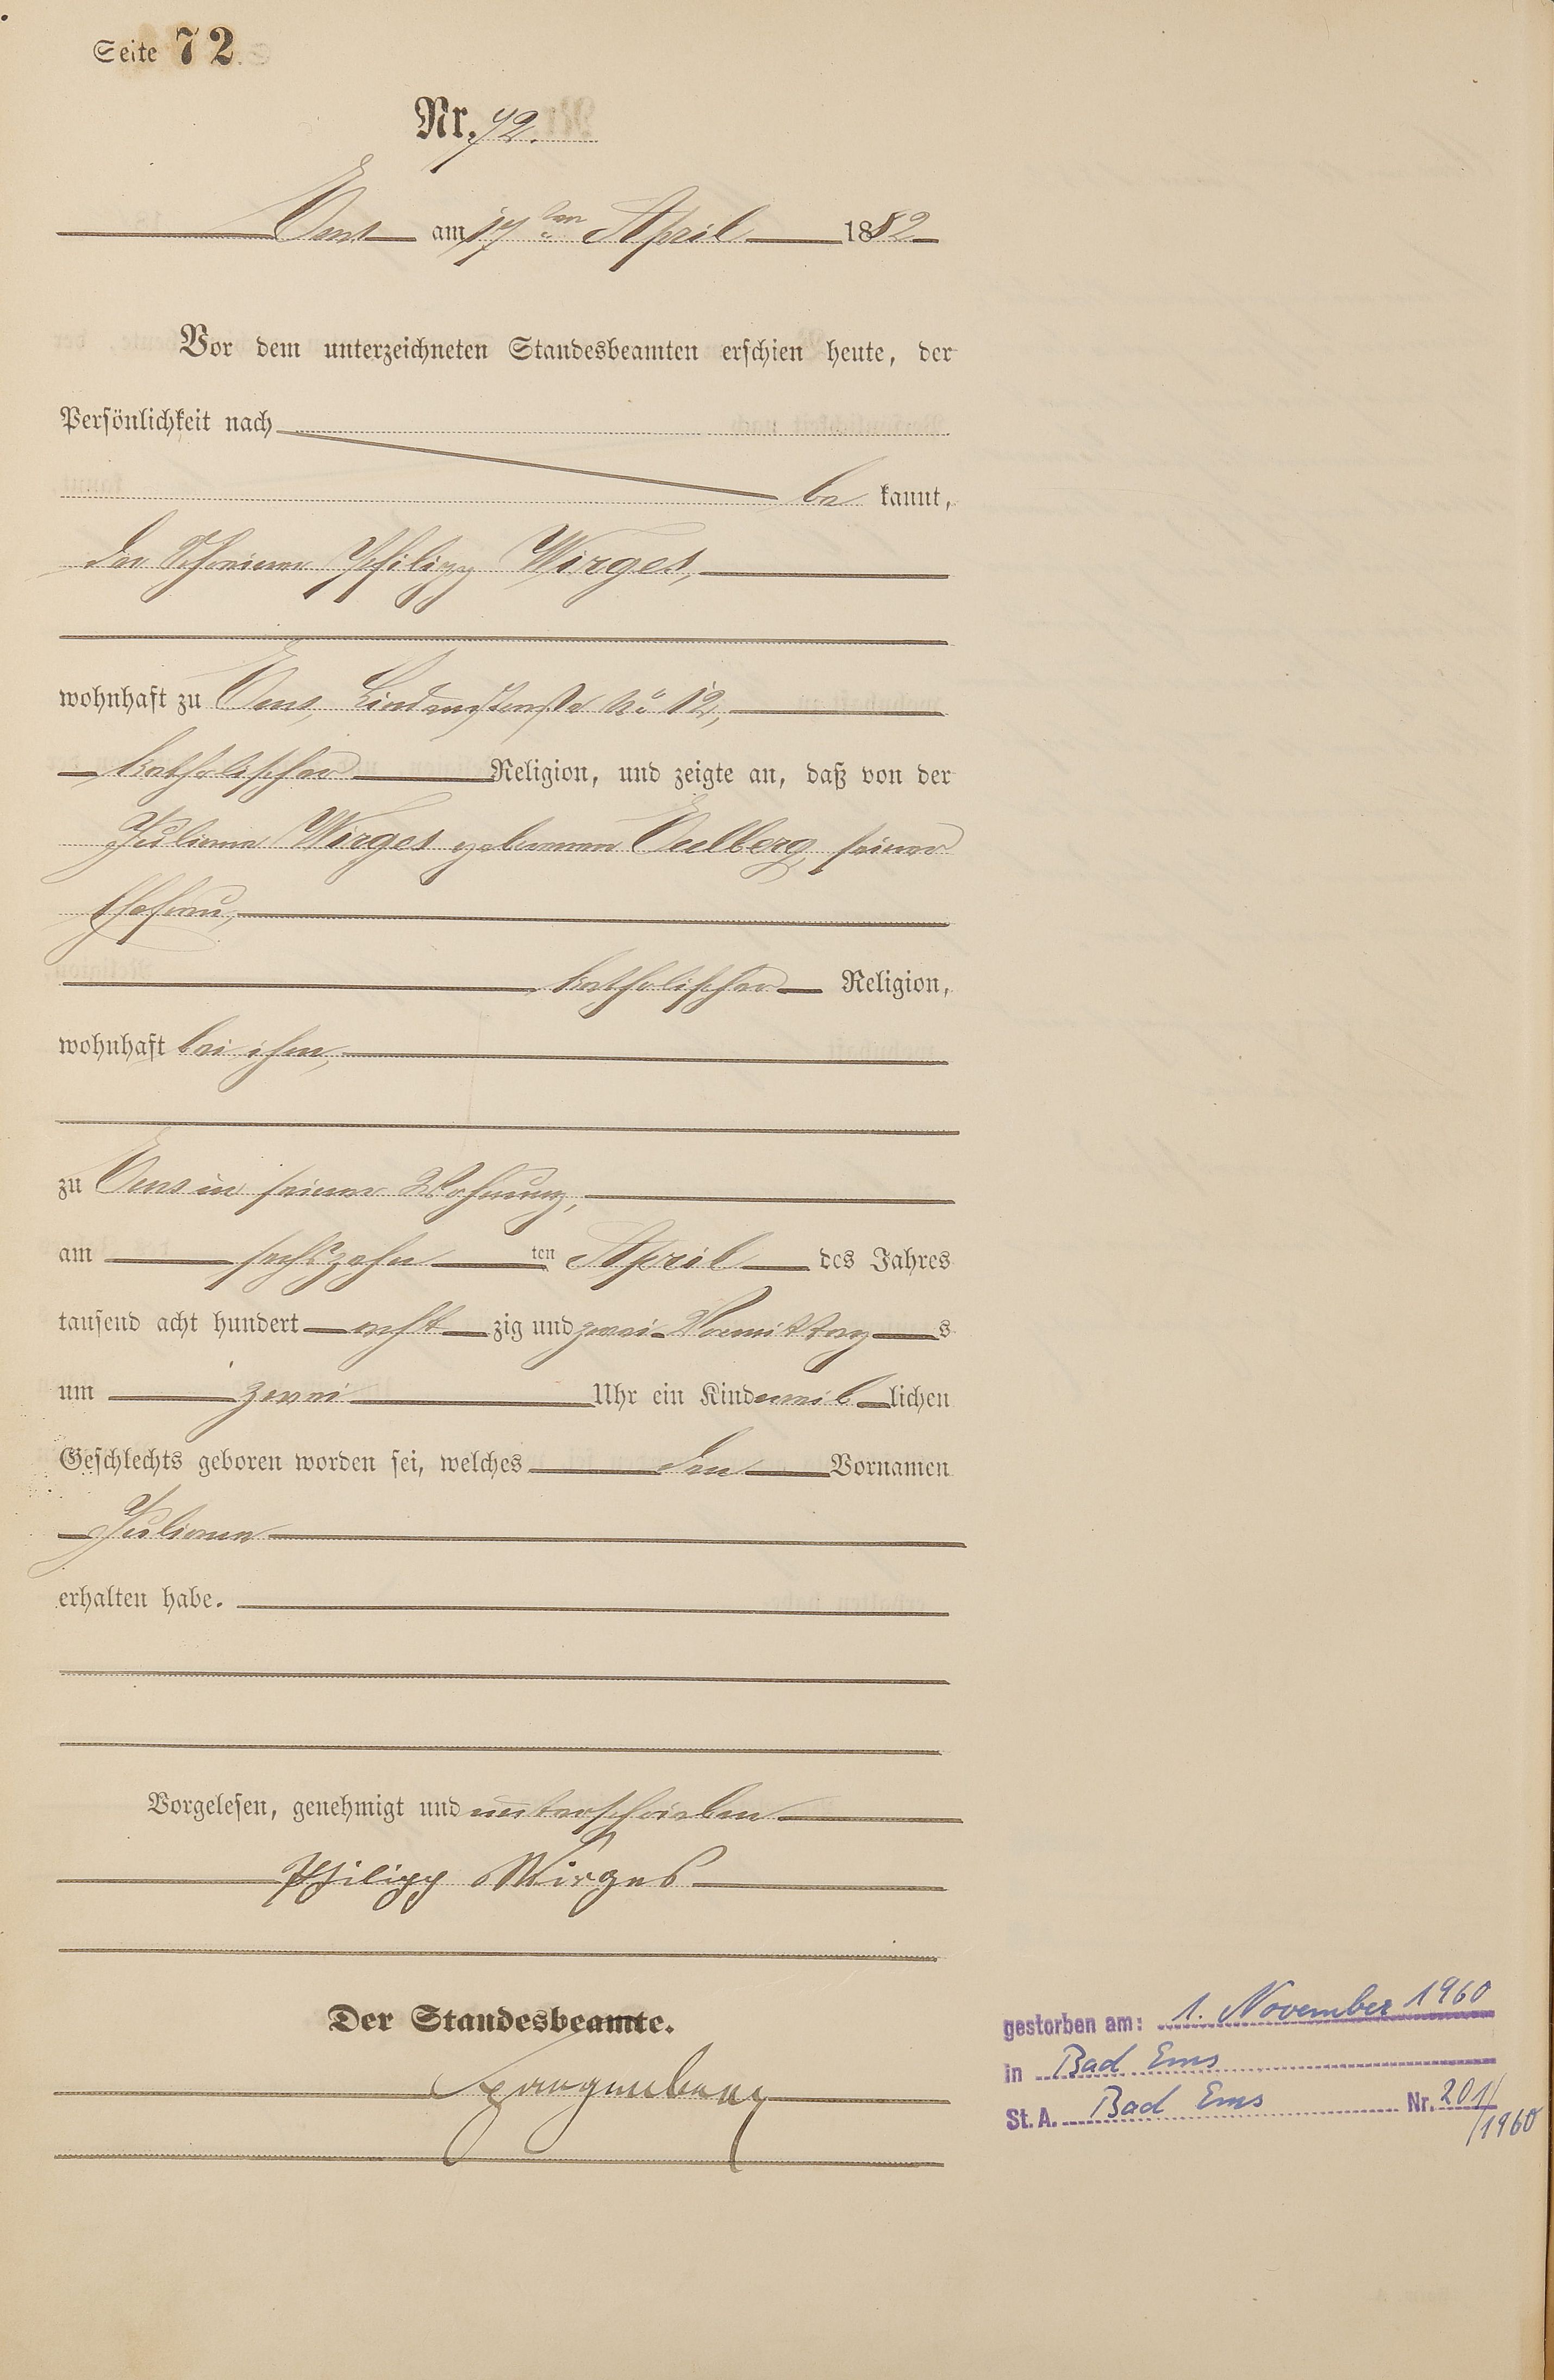 Seite 72.
Nr. 72.
Ems am 17ten April 1882
Vor dem unterzeichneten Standesbeamten erschien heute, der
Persönlichkeit nach
be kannt,
der Schreiner Philipp Wirges,
wohnhaft zu Ems, Lindenstraße No 12,
katholischer Religion, und zeigte an, daß von der
Juliana Wirges geborenen Oelberg, seiner
Ehefrau,
katholischer Religion,
wohnhaft bei ihm,
zu Ems in seiner Wohnung,
am sechszehn ten April des Jahres
tausend acht hundert acht zig und zwei Vormittag s
um zwei Uhr ein Kind weib lichen
Geschlechts geboren worden sei, welches den Vornamen
Juliana
erhalten habe.
Vorgelesen, genehmigt und unterschrieben
Philipp Wirges
Der Standesbeamte.
gestorben am: 1. November 1960
in Bad Ems
St. A. Bad Ems Nr. 201/
/1960